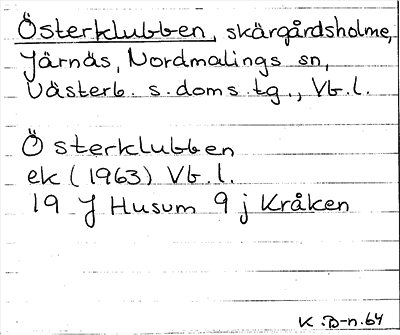 Österklubben, skärgårdsholme,
Järnäs, Nordmalings sn,
Västerb. s. doms. tg., Vb. l.
Österklubben
ek (1963) Vb. l.
19 J Husum 9 j Kråken
K. D-n. 64